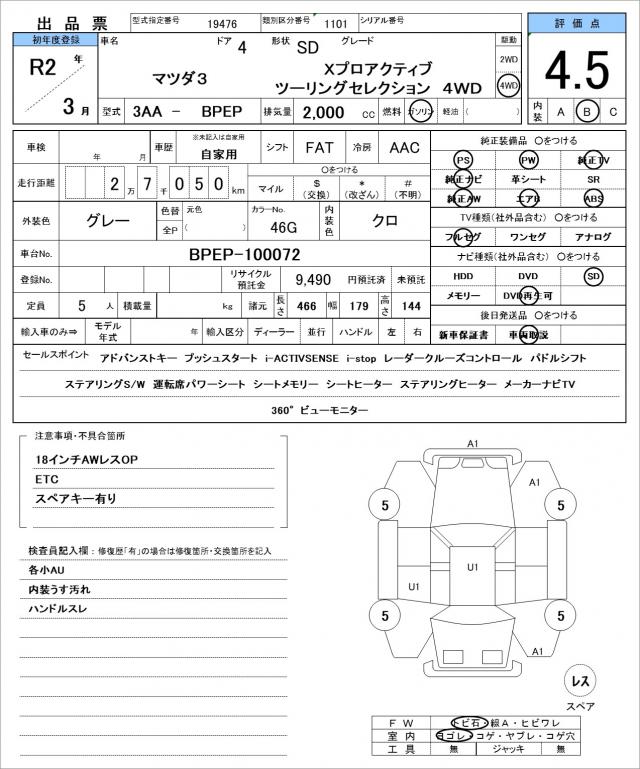 出品票 型式指定番号 19476 類別区分番号 1101 シリアル番号
初年度登録 車名 ドア 4 形状 SD グレード 駆動 評価点
R2 年 3 月 マツダ3 Xプロアクティブ 2WD 4.5
ツーリングセレクション 4WD 4WD
型式 3AA － BPEP 排気量 2,000 cc 燃料 ガソリン 軽油 ( ) 内装 A B C
車検 年 月 車歴 ※未記入は自家用 自家用 シフト FAT 冷房 AAC
走行距離 2 万 7 千 0 5 0 km 〇をつける マイル $ (交換) * (改ざん) # (不明)
外装色 グレー 色替 全P 元色 ( ) カラーNo. 46G 内装色 クロ
車台No. BPEP-100072
登録No. リサイクル預託金 9,490 円預託済 未預託
定員 5 人 積載量 kg 諸元 長さ 466 幅 179 高さ 144
輸入車のみ⇒ モデル年式 年 輸入区分 ディーラー 並行 ハンドル 左 右
純正装備品 〇をつける
PS PW 純正TV
純正ナビ 革シート SR
純正AW エアB ABS
TV種類(社外品含む) 〇をつける
フルセグ ワンセグ アナログ
ナビ種類(社外品含む) 〇をつける
HDD DVD SD
メモリー DVD再生可
後日発送品 〇をつける
新車保証書 車両取説
セールスポイント アドバンストキー プッシュスタート i-ACTIVSENSE i-stop レーダークルーズコントロール パドルシフト
ステアリングS/W 運転席パワーシート シートメモリー シートヒーター ステアリングヒーター メーカーナビTV
360°ビューモニター
注意事項・不具合箇所
18インチAWレスOP
ETC
スペアキー有り
検査員記入欄：修復歴「有」の場合は修復箇所・交換箇所を記入
各小AU
内装うす汚れ
ハンドルスレ
A1
A1
5 5
U1
U1
5 5
A1
レス
スペア
ＦＷ トビ石・線A・ヒビワレ
室内 ヨゴレ・コゲ・ヤブレ・コゲ穴
工具 無 ジャッキ 無